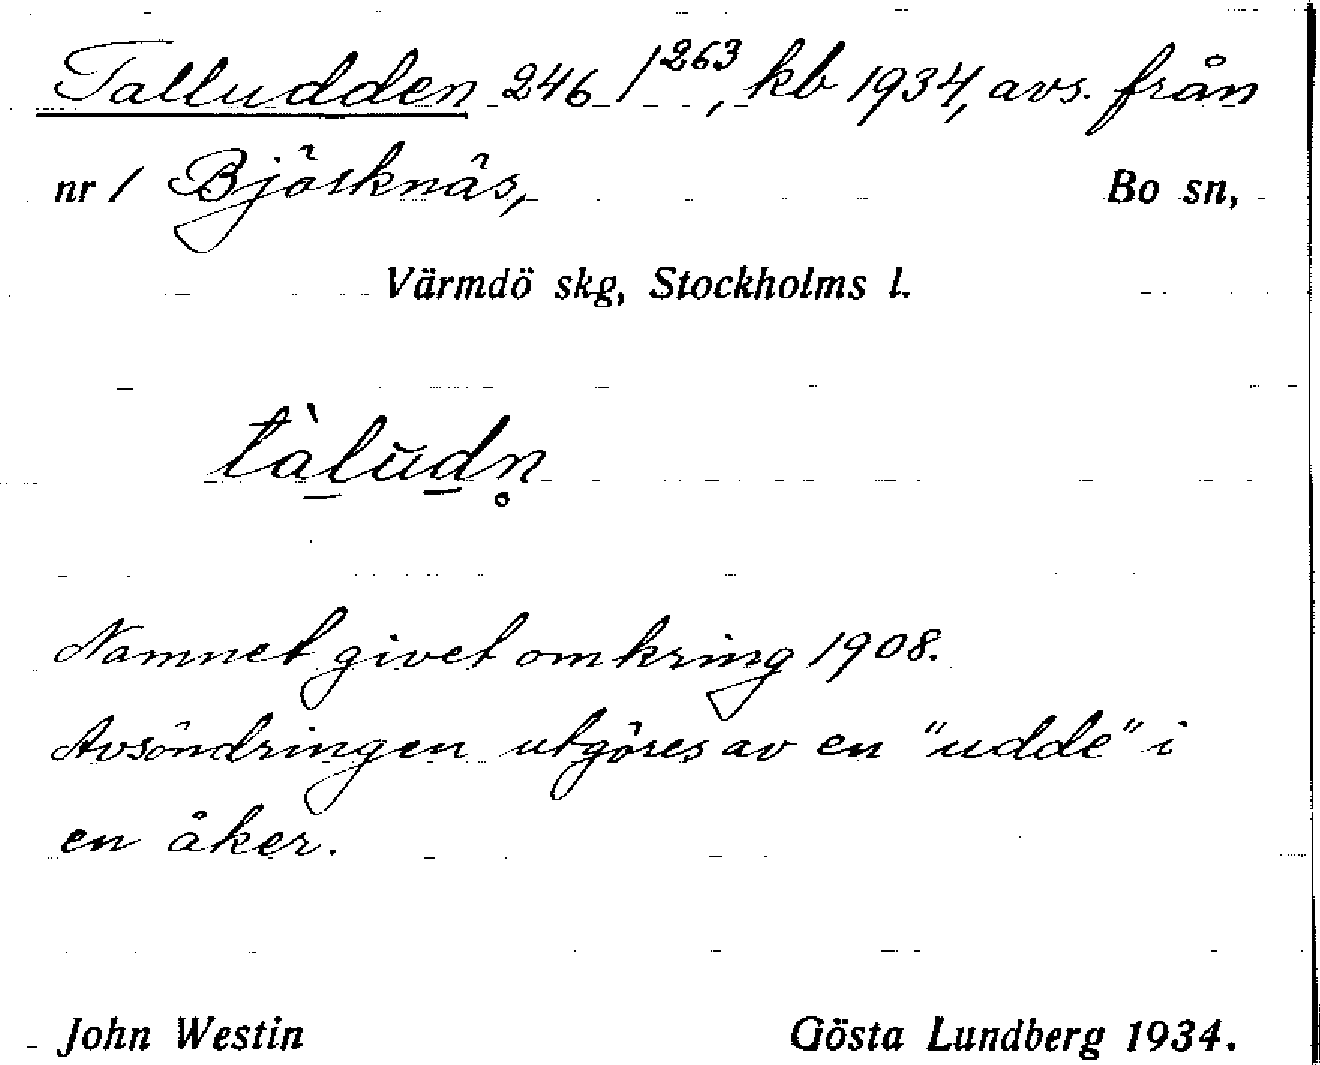 Talludden 246 / 263, kb 1934, avs. från
nr 1 Björknäs, Bo sn,
Värmdö skg, Stockholms l.
tàl̠ūd̠n̥
Namnet givet omkring 1908.
Avsöndringen utgöres av en "udde" i
en åker.
John Westin Gösta Lundberg 1934.